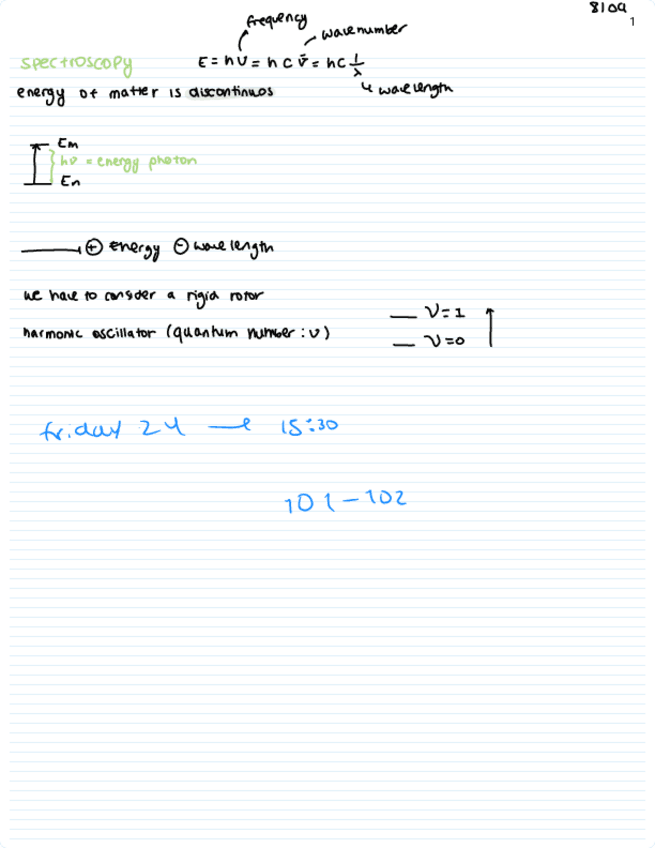 8109
1
frequency
wavenumber
spectroscopy E = hν = h c ν̄ = hc 1/λ
↳ wavelength
energy of matter is discontinuos
Em
hν = energy photon
En
⊕ energy ⊖ wavelength
we have to consider a rigid rotor
harmonic oscillator (quantum number: ν)
ν=1
ν=0
friday 24 → 15:30
101-102